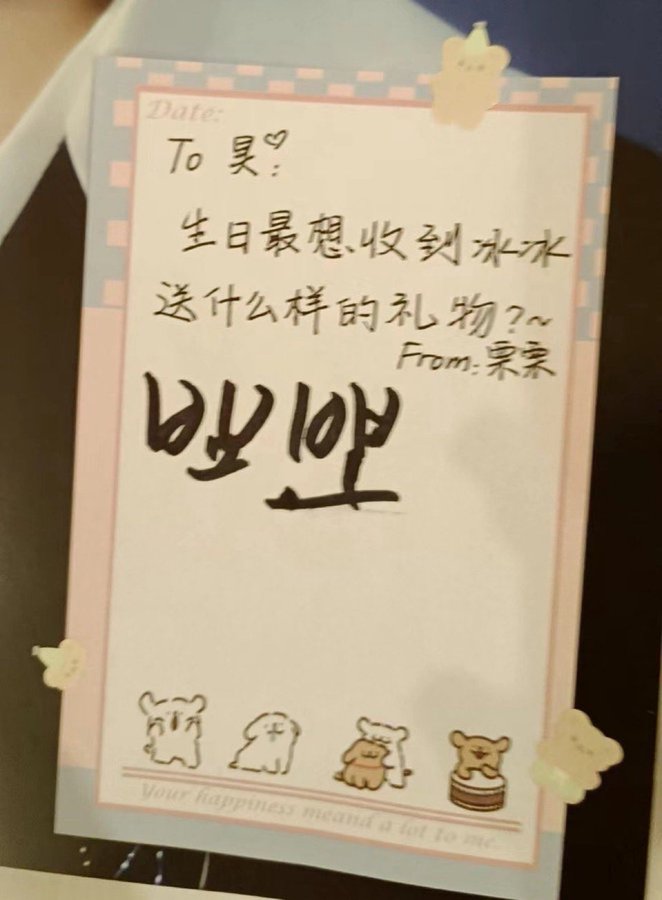 Date:
To 昊♡:
生日最想收到冰冰
送什么样的礼物?~
From:栗栗
Your happiness meand a lot to me